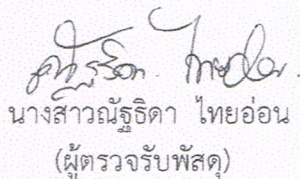 ณัฐธิดา ไทยอ่อน.
นางสาวณัฐธิดา ไทยอ่อน
(ผู้ตรวจรับพัสดุ)